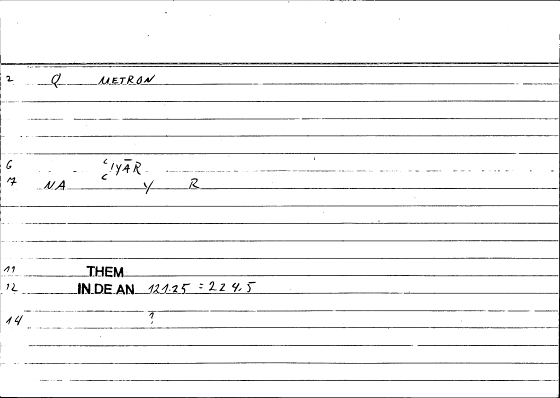 2 Q METRON
6 ʿIYĀR
7 NA Y R
11 THEM
12 IN.DE AN 121.25 = 224.5
14 ?